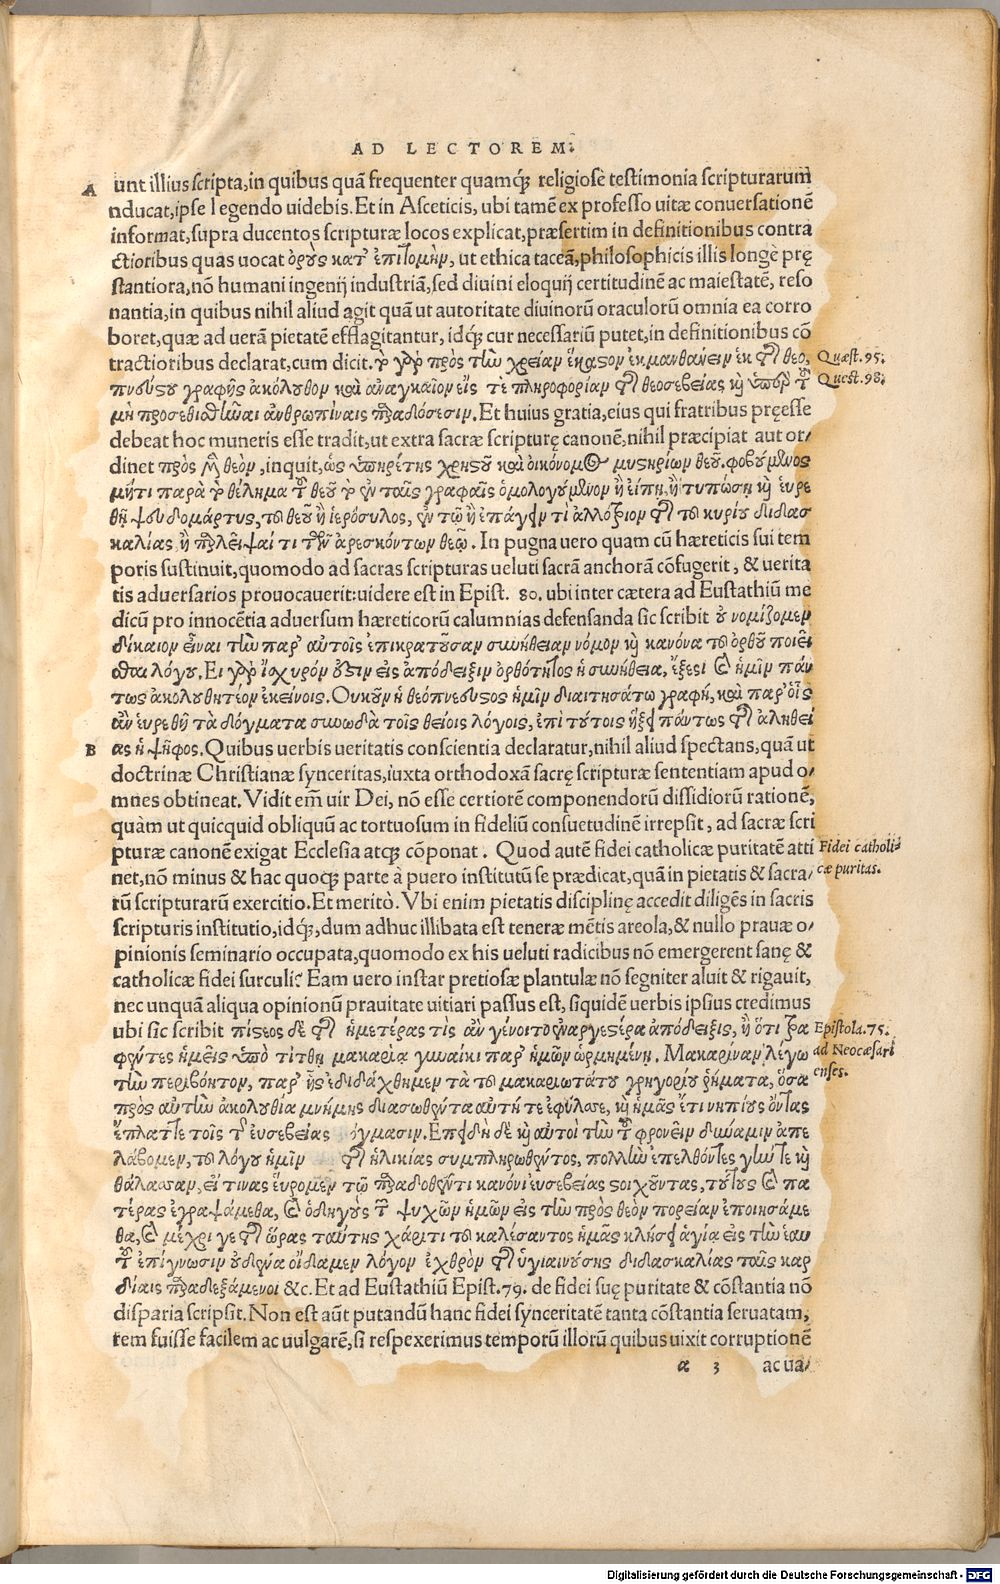 AD LECTOREM.
A unt illius scripta, in quibus quã frequenter quamq́; religiosè testimonia scripturarum
nducat, ipse legendo uidebis. Et in Asceticis, ubi tamẽ ex professo uitæ conuersationẽ
informat, supra ducentos scripturæ locos explicat, præsertim in definitionibus contra
ctioribus quas uocat ὁρους κατ᾽ ἐπιτομὴν, ut ethica taceã, philosophicis illis longè prę
stantiora, nõ humani ingenij industriã, sed diuini eloquij certitudinẽ ac maiestatẽ, reso
nantia, in quibus nihil aliud agit quã ut autoritate diuinorũ oraculorũ omnia ea corro
boret, quæ ad uerã pietatẽ efflagitantur, idq́; cur necessariũ putet, in definitionibus cõ
tractioribus declarat, cum dicit. τὸ γὰρ πρὸς τὴν χρείαν ἕκαστον ἐκμανθάνειν ἐκ τῆς θεο, Quæst. 95.
πνεύστου γραφῆς ἀκόλουθον καὶ ἀναγκαῖον εἴς τε πληροφορίαν τῆς θεοσεβείας καὶ ὑπὲρ τοῦ Quæst. 98.
μὴ προσεθισθῆναι ἀνθρωπίναις παραδόσεσιν. Et huius gratia, eius qui fratribus pręesse
debeat hoc muneris esse tradit, ut extra sacræ scripturę canonẽ, nihil præcipiat aut or/
dinet πρὸς μὲν θεὸν, inquit, ὡς ὑπηρέτης χριστοῦ καὶ οἰκόνομος μυστηρίων θεοῦ. φοβούμενος
μήτι παρὰ τὸ θέλημα τοῦ θεοῦ τὸ ἐν ταῖς γραφαῖς ὁμολογούμενον ἢ εἴπῃ, ἢ τυπώσῃ καὶ εὑρε
θῇ ψευδομάρτυς, τοῦ θεοῦ ἢ ἱερόσυλος, ἐν τῷ ἢ ἐπάγειν τὶ ἀλλότριον τῆς τοῦ κυρίου διδασ
καλίας ἢ παραλεῖψαί τι τῶν ἀρεσκόντων θεῷ. In pugna uero quam cũ hæreticis sui tem
poris sustinuit, quomodo ad sacras scripturas ueluti sacrã anchorã cõfugerit, & uerita
tis aduersarios prouocauerit: uidere est in Epist. 80. ubi inter cætera ad Eustathiũ me
dicũ pro innocẽtia aduersum hæreticorũ calumnias defensanda sic scribit οὐ νομίζομεν
δίκαιον εἶναι τὴν παρ᾽ αὐτοῖς ἐπικρατοῦσαν συνήθειαν νόμον καὶ κανόνα τοῦ ὀρθοῦ ποιεῖ
σθαι λόγου. Ει γὰρ ἰσχυρόν ἐστιν εἰς ἀπόδειξιν ὀρθότητος ἡ συνήθεια, ἔξεστι καὶ ἡμῖν πάν
τως ἀκολουθητέον ἐκείνοις. Ουκοῦν ἡ θεόπνευστος ἡμῖν διαιτησάτω γραφή, καὶ παρ᾽ οἷς
ἂν ἑυρεθῇ τὰ δόγματα συνωδὰ τοῖς θείοις λόγοις, ἐπὶ τούτοις ἥξει πάντως τῆς ἀληθεί
B ας ἡ ψῆφος. Quibus uerbis ueritatis conscientia declaratur, nihil aliud spectans, quã ut
doctrinæ Christianæ synceritas, iuxta orthodoxã sacrę scripturæ sententiam apud o/
mnes obtineat. Vidit em̃ uir Dei, nõ esse certiorẽ componendorũ dissidiorũ rationẽ,
quàm ut quicquid obliquũ ac tortuosum in fideliũ consuetudinẽ irrepsit, ad sacræ scri
pturæ canonẽ exigat Ecclesia atq; cõponat. Quod autẽ fidei catholicæ puritatẽ atti Fidei catholi⸗
net, nõ minus & hac quoq; parte à puero institutũ se prædicat, quã in pietatis & sacra/ cæ puritas.
rũ scripturarũ exercitio. Et meritò. Vbi enim pietatis disciplinę accedit diligẽs in sacris
scripturis institutio, idq́;, dum adhuc illibata est teneræ mẽtis areola, & nullo prauæ o/
pinionis seminario occupata, quomodo ex his ueluti radicibus nõ emergerent sanę &
catholicæ fidei surculi? Eam uero instar pretiosæ plantulæ nõ segniter aluit & rigauit,
nec unquã aliqua opinionũ prauitate uitiari passus est, siquidẽ uerbis ipsius credimus
ubi sic scribit πίστεος δὲ τῆς ἡμετέρας τὶς ἂν γένοιτο ἐναργεστέρα ἀπόδειξις, ἢ ὅτι τρα Epistola. 75.
φέντες ἡμεῖς ὑπὸ τίτθῃ μακαρίᾳ γυναικὶ παρ᾽ ἡμῶν ὡρμημένῃ. Μακαρίναν λέγω ad Neocæsari
τὴν περιβόητον, παρ᾽ ἧς ἐδιδάχθημεν τὰ τοῦ μακαριωτάτου γρηγορίου ῥήματα, ὅσα enses.
πρὸς αὐτὴν ἀκολουθία μνήμης διασωθέντα αὐτή τε ἐφύλασε, καὶ ἡμᾶς ἔτι νηπίους ὄντας
ἔπλαττε τοῖς τῆς ἐυσεβείας όγμασιν. Επειδὴ δὲ καὶ αὐτοὶ τὴν τοῦ φρονεῖν δύναμιν ἀπε
λάβομεν, τοῦ λόγου ἡμῖν τῆς ἡλικίας συμπληρωθέντος, πολλὴν ἐπελθόντες γῆν τε καὶ
θάλασσαν, εἴ τινας ἕυρομεν τῷ παραδοθέντι κανόνι ἐυσεβείας στοιχοῦντας, τούτους καὶ πα
τέρας ἐγραψάμεθα, καὶ ὁδηγοὺς τῶν ψυχῶν ἡμῶν εἰς τὴν πρὸς θεὸν πορείαν ἐποιησάμε
θα, καὶ μέχρι γε τῆς ὥρας ταύτης χάριτι τοῦ καλέσαντος ἡμᾶς κλήσει ἁγίᾳ εἰς τὴν ἑαυ
τοῦ ἐπίγνωσιν οὐδένα οἴδαμεν λόγον ἐχθρὸν τῆς ὑγιαινούσης διδασκαλίας ταῖς καρ
δίαις παραδεξάμενοι &c. Et ad Eustathiũ Epist. 79. de fidei suę puritate & cõstantia nõ
disparia scripsit. Non est aũt putandũ hanc fidei synceritatẽ tanta cõstantia seruatam,
rem fuisse facilem ac uulgarẽ, si respexerimus temporũ illorũ quibus uixit corruptionẽ
α 3 ac ua/
Digitalisierung gefördert durch die Deutsche Forschungsgemeinschaft - DFG